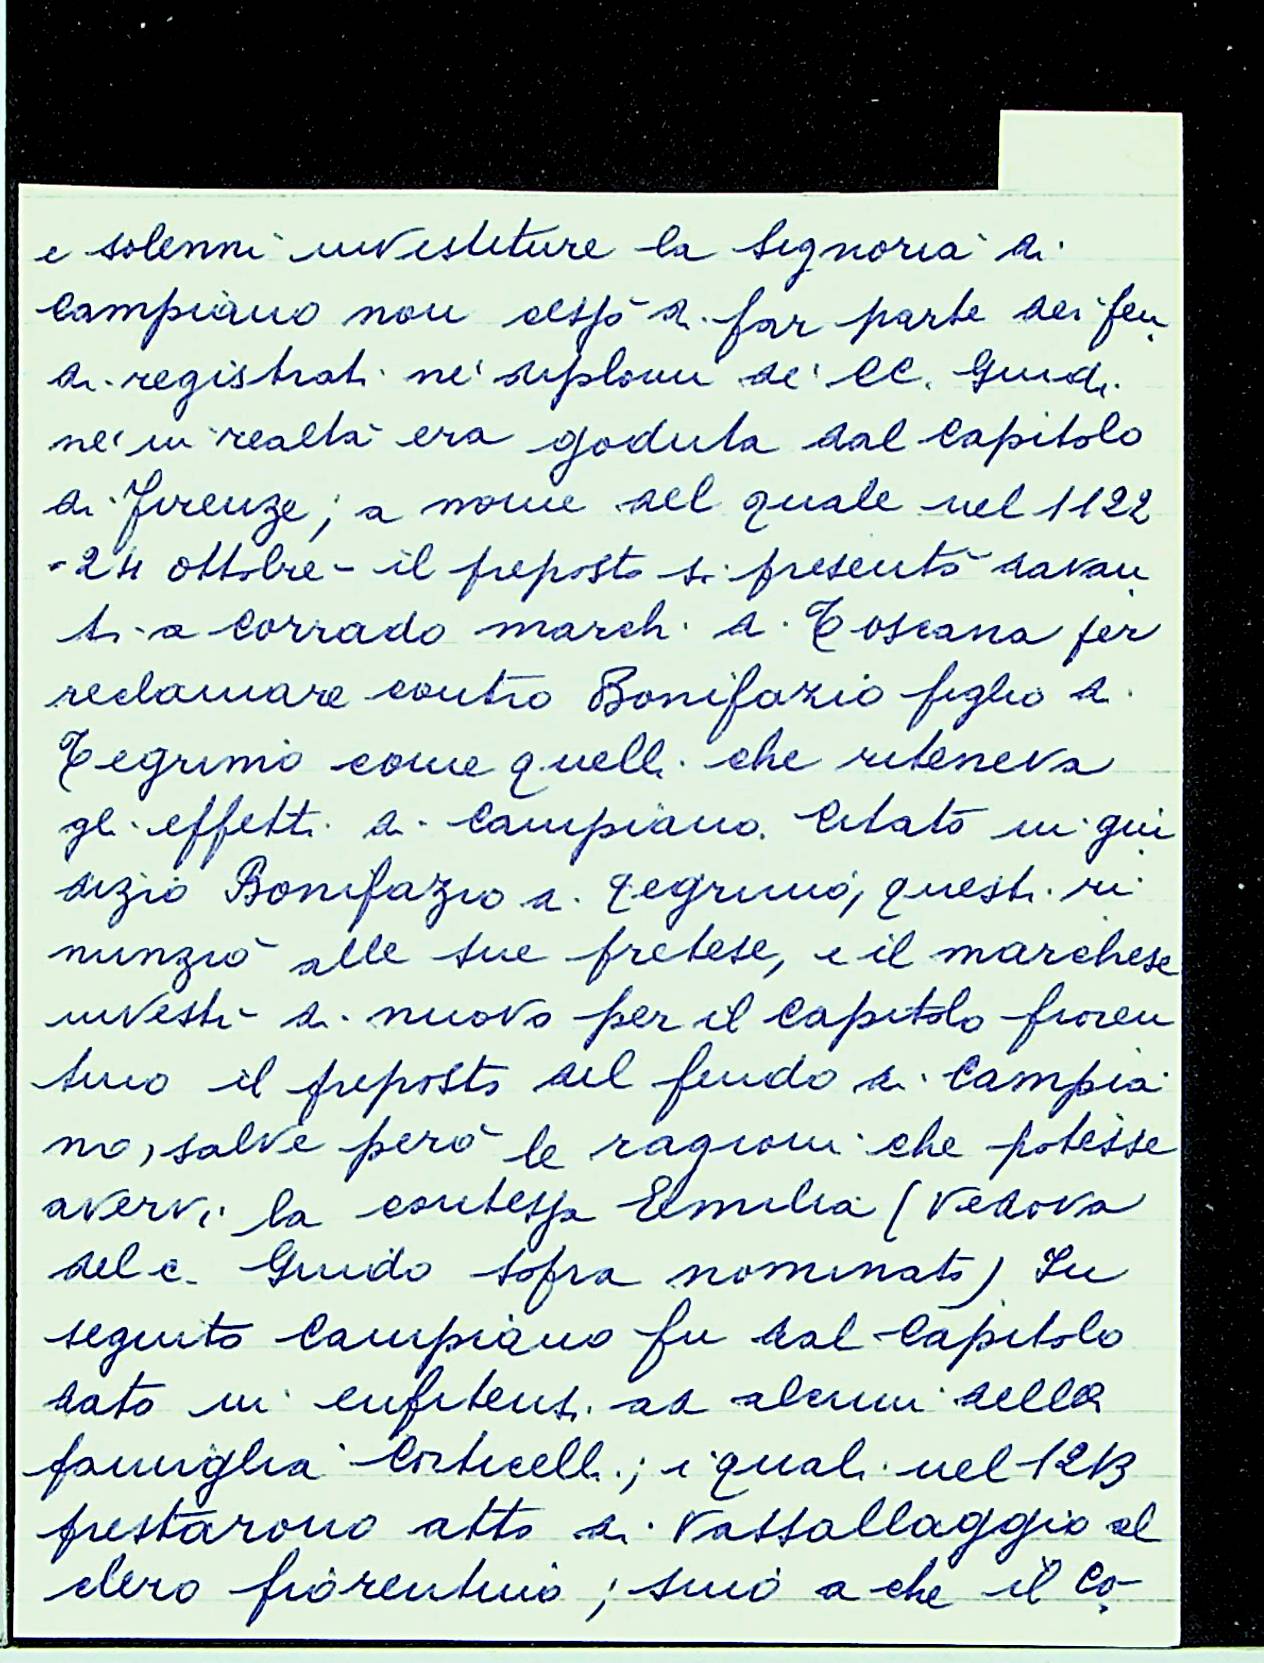 e solenni investiture la Signoria di
Campiano non cessò di far parte dei feu
di registrati ne' diplomi de' CC. Guidi
nè in realtà era goduta dal Capitolo
di Firenze; a nome del quale nel 1122
-24 ottobre- il preposto si presentò davan
ti a Corrado march. di Toscana per
reclamare contro Bonifazio figlio di
Tegrimo come quelli che riteneva
gli effetti di Campiano. Citato in giu
dizio Bonifazio di Tegrimo, questi ri
nunziò alle sue pretese, e il marchese
investì di nuovo per il Capitolo fioren
tino il preposto del feudo di Campia
no, salve però le ragioni che potesse
avervi la contessa Emilia (vedova
del c. Guido sopra nominato) In
seguito Campiano fu dal Capitolo
dato in enfiteusi ad alcuni della
famiglia Corticelli; i quali nel 1213
prestarono atto di vassallaggio al
clero fiorentino; sino a che il Co-